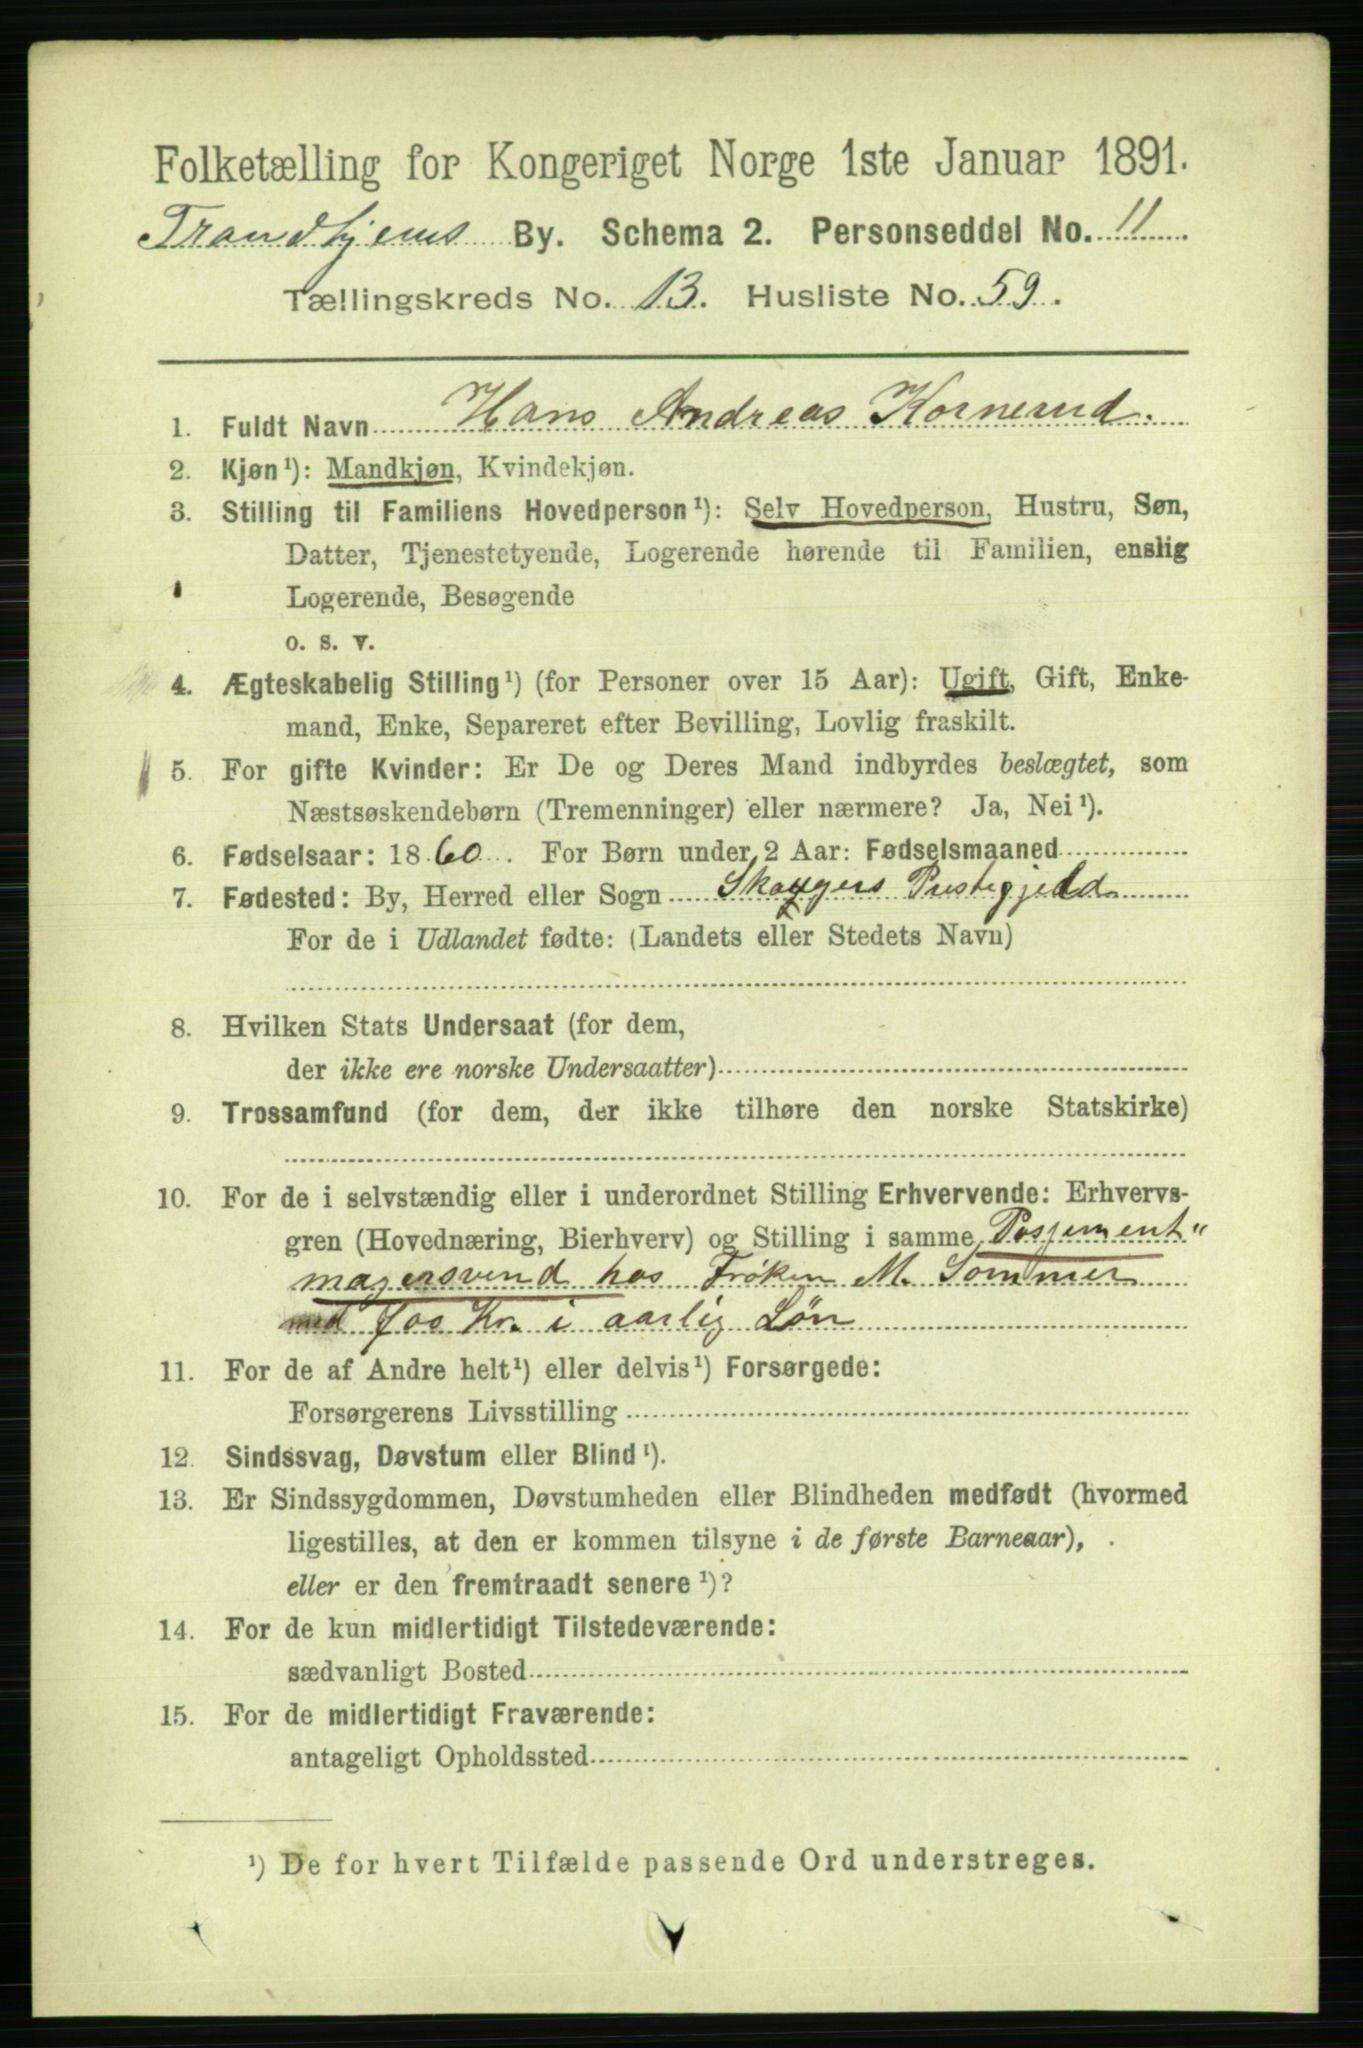 Folketælling for Kongeriget Norge 1ste Januar 1891.
Trondhjems By. Schema 2. Personseddel No. 11
Tællingskreds No. 13. Husliste No. 59.
1. Fuldt Navn Hans Andreas Kornerud.
2. Kjøn¹): Mandkjøn, Kvindekjøn.
3. Stilling til Familiens Hovedperson¹): Selv Hovedperson, Hustru, Søn,
Datter, Tjenestetyende, Logerende hørende til Familien, enslig
Logerende, Besøgende
o. s. v.
4. Ægteskabelig Stilling¹) (for Personer over 15 Aar): Ugift, Gift, Enke-
mand, Enke, Separeret efter Bevilling, Lovlig fraskilt.
5. For gifte Kvinder: Er De og Deres Mand indbyrdes beslægtet, som
Næstsøskendebørn (Tremenninger) eller nærmere? Ja, Nei¹).
6. Fødselsaar: 1860. For Børn under 2 Aar: Fødselsmaaned
7. Fødested: By, Herred eller Sogn Skogers Prestegjeld
For de i Udlandet fødte: (Landets eller Stedets Navn)
8. Hvilken Stats Undersaat (for dem,
der ikke ere norske Undersaatter)
9. Trossamfund (for dem, der ikke tilhøre den norske Statskirke)
10. For de i selvstændig eller i underordnet Stilling Erhvervende: Erhvervs-
gren (Hovednæring, Bierhverv) og Stilling i samme Possement"
magersvend hos Frøken M. Sommer
med 700 Kr. i aarlig Løn
11. For de af Andre helt¹) eller delvis¹) Forsørgede:
Forsørgerens Livsstilling
12. Sindssvag, Døvstum eller Blind¹).
13. Er Sindssygdommen, Døvstumheden eller Blindheden medfødt (hvormed
ligestilles, at den er kommen tilsyne i de første Barneaar),
eller er den fremtraadt senere¹)?
14. For de kun midlertidigt Tilstedeværende:
sædvanligt Bosted
15. For de midlertidigt Fraværende:
antageligt Opholdssted
¹) De for hvert Tilfælde passende Ord understreges.